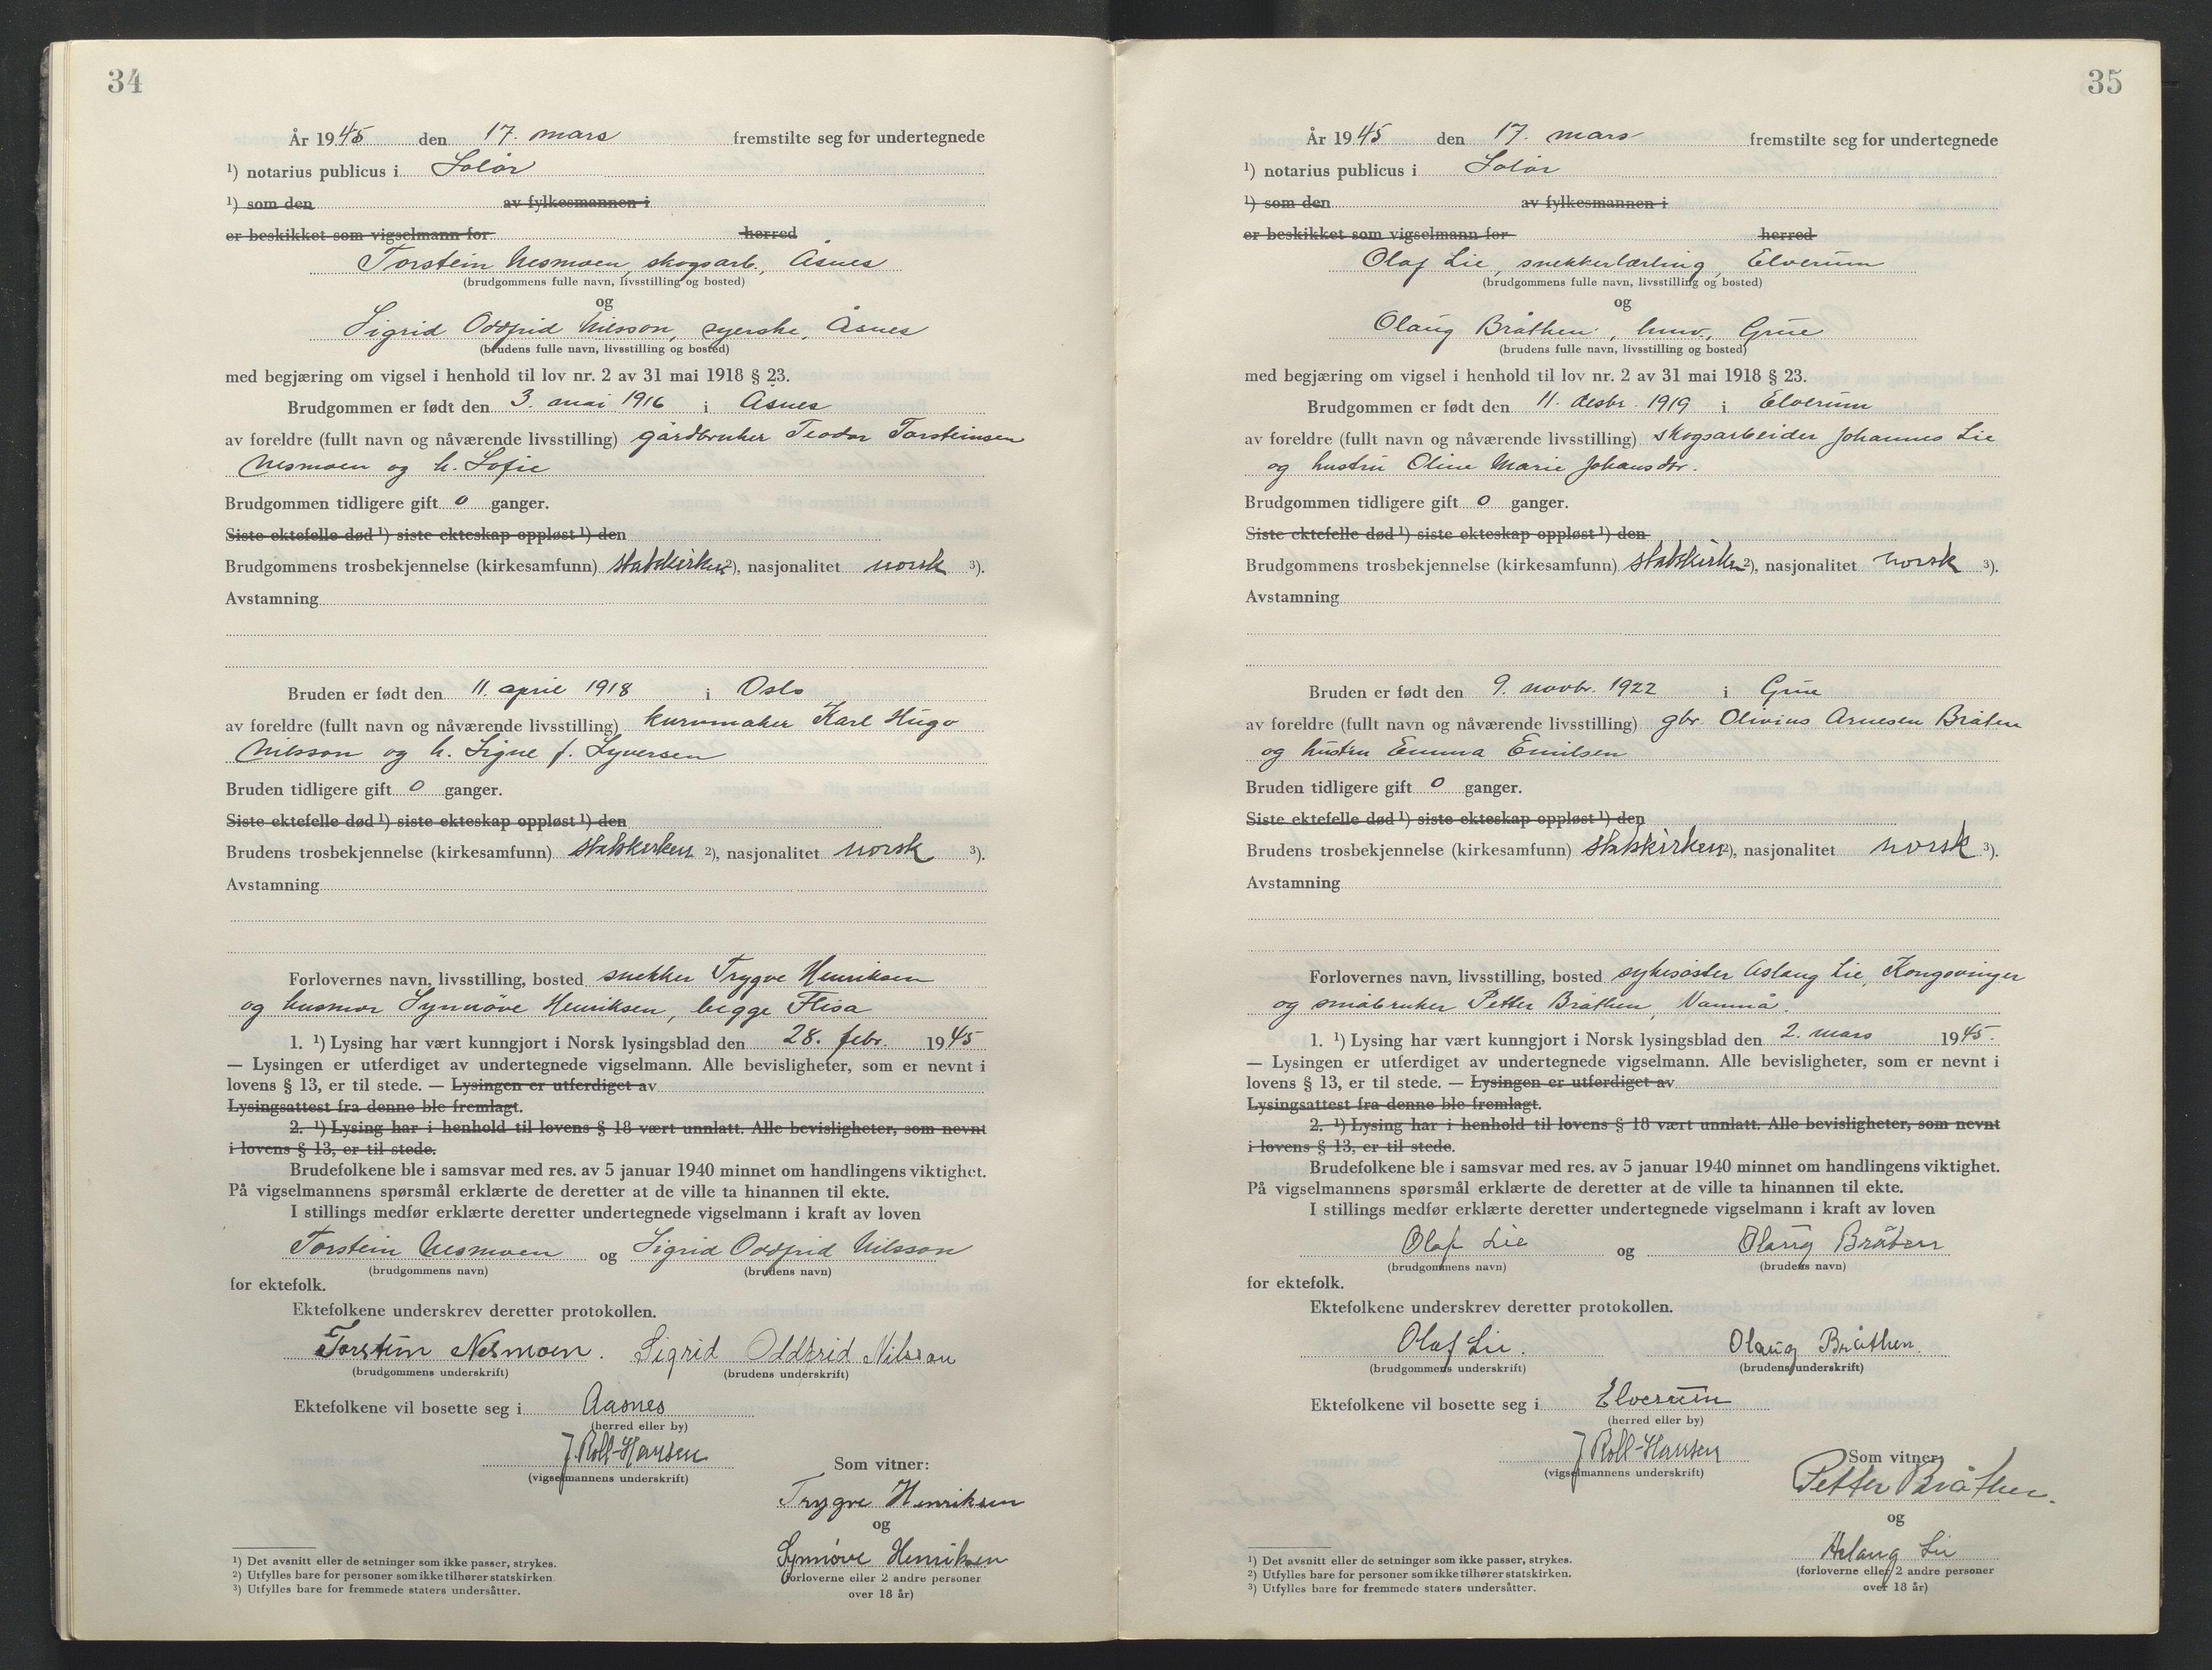 34
År 1945 den 17. mars fremstilte seg for undertegnede
¹) notarius publicus i Solør
¹) som den av fylkesmannen i
er beskikket som vigselmann for herred
Torstein Nesmoen, skogsarb., Åsnes
(brudgommens fulle navn, livsstilling og bosted)
og
Sigrid Oddfrid Nilsson, syerske, Åsnes
(brudens fulle navn, livsstilling og bosted)
med begjæring om vigsel i henhold til lov nr. 2 av 31 mai 1918 § 23.
Brudgommen er født den 3. mai 1916 i Åsnes
av foreldre (fullt navn og nåværende livsstilling) gårdbruker Teodor Torsteinsen
Nesmoen og h. Sofie
Brudgommen tidligere gift 0 ganger.
Siste ektefelle død ¹) siste ekteskap oppløst ¹) den
Brudgommens trosbekjennelse (kirkesamfunn) statskirken ²), nasjonalitet norsk ³).
Avstamning
Bruden er født den 11. april 1918 i Oslo
av foreldre (fullt navn og nåværende livsstilling) kurvmaker Karl Hugo
Nilsson og h. Signe f. Syversen
Bruden tidligere gift 0 ganger.
Siste ektefelle død ¹) siste ekteskap oppløst ¹) den
Brudens trosbekjennelse (kirkesamfunn) statskirken ²), nasjonalitet norsk ³).
Avstamning
Forlovernes navn, livsstilling, bosted snekker Trygve Henriksen
og husmor Synnöve Henriksen, begge Flisa
1. ¹) Lysing har vært kunngjort i Norsk lysingsblad den 28. febr. 1945
— Lysingen er utferdiget av undertegnede vigselmann. Alle bevisligheter, som er nevnt i
lovens § 13, er til stede. — Lysingen er utferdiget av
Lysingsattest fra denne ble fremlagt.
2. ¹) Lysing har i henhold til lovens § 18 vært unnlatt. Alle bevisligheter, som nevnt
i lovens § 13, er til stede.
Brudefolkene ble i samsvar med res. av 5 januar 1940 minnet om handlingens viktighet.
På vigselmannens spørsmål erklærte de deretter at de ville ta hinannen til ekte.
I stillings medfør erklærte deretter undertegnede vigselmann i kraft av loven
Torstein Nesmoen og Sigrid Oddfrid Nilsson
(brudgommens navn) (brudens navn)
for ektefolk.
Ektefolkene underskrev deretter protokollen.
Torstein Nesmoen. Sigrid Oddfrid Nilsson
(brudgommens underskrift) (brudens underskrift)
Ektefolkene vil bosette seg i Aasnes
(herred eller by)
J. Roll-Hansen
(vigselmannens underskrift)
Som vitner:
Trygve Henriksen
og
Synnöve Henriksen
(forloverne eller 2 andre personer
over 18 år)
¹) Det avsnitt eller de setninger som ikke passer, strykes.
²) Utfylles bare for personer som ikke tilhører statskirken.
³) Utfylles bare for fremmede staters undersåtter.
35
År 1945 den 17. mars fremstilte seg for undertegnede
¹) notarius publicus i Solør
¹) som den av fylkesmannen i
er beskikket som vigselmann for herred
Olaf Lie, snekkerlærling, Elverum
(brudgommens fulle navn, livsstilling og bosted)
og
Olaug Bråthen, husv., Grue
(brudens fulle navn, livsstilling og bosted)
med begjæring om vigsel i henhold til lov nr. 2 av 31 mai 1918 § 23.
Brudgommen er født den 11. desbr. 1919 i Elverum
av foreldre (fullt navn og nåværende livsstilling) skogsarbeider Johannes Lie
og hustru Oline Marie Johansdtr.
Brudgommen tidligere gift 0 ganger.
Siste ektefelle død ¹) siste ekteskap oppløst ¹) den
Brudgommens trosbekjennelse (kirkesamfunn) statskirken ²), nasjonalitet norsk ³).
Avstamning
Bruden er født den 9. novbr. 1922 i Grue
av foreldre (fullt navn og nåværende livsstilling) gbr. Olivius Arnesen Bråten
og hustru Emma Emilsen
Bruden tidligere gift 0 ganger.
Siste ektefelle død ¹) siste ekteskap oppløst ¹) den
Brudens trosbekjennelse (kirkesamfunn) statskirken ²), nasjonalitet norsk ³).
Avstamning
Forlovernes navn, livsstilling, bosted sykesöster Aslaug Lie, Kongsvinger
og småbruker Petter Bråthen, Namnå.
1. ¹) Lysing har vært kunngjort i Norsk lysingsblad den 2. mars 1945.
— Lysingen er utferdiget av undertegnede vigselmann. Alle bevisligheter, som er nevnt i
lovens § 13, er til stede. — Lysingen er utferdiget av
Lysingsattest fra denne ble fremlagt.
2. ¹) Lysing har i henhold til lovens § 18 vært unnlatt. Alle bevisligheter, som nevnt
i lovens § 13, er til stede.
Brudefolkene ble i samsvar med res. av 5 januar 1940 minnet om handlingens viktighet.
På vigselmannens spørsmål erklærte de deretter at de ville ta hinannen til ekte.
I stillings medfør erklærte deretter undertegnede vigselmann i kraft av loven
Olaf Lie og Olaug Bråten
(brudgommens navn) (brudens navn)
for ektefolk.
Ektefolkene underskrev deretter protokollen.
Olaf Lie. Olaug Bråthen.
(brudgommens underskrift) (brudens underskrift)
Ektefolkene vil bosette seg i Elverum
(herred eller by)
J. Roll-Hansen
(vigselmannens underskrift)
Som vitner:
Petter Bråthen.
og
Aslaug Lie
(forloverne eller 2 andre personer
over 18 år)
¹) Det avsnitt eller de setninger som ikke passer, strykes.
²) Utfylles bare for personer som ikke tilhører statskirken.
³) Utfylles bare for fremmede staters undersåtter.